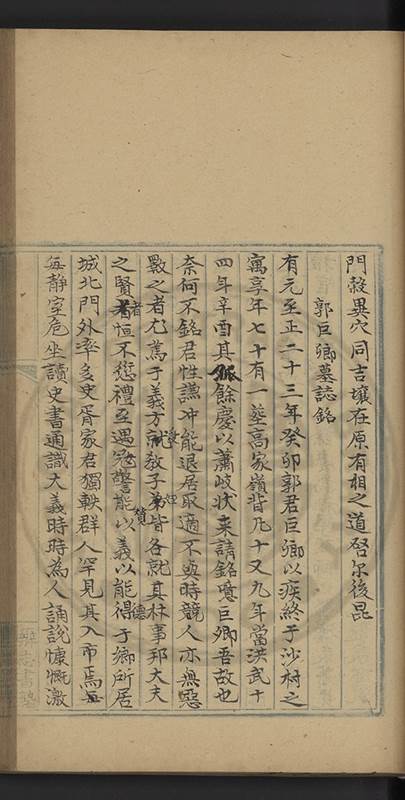 門殺異穴同吉壤在原有相之道啓尔後昆
郭巨卿墓誌銘
有元至正二十三年癸卯郭君巨卿以疾終于沙村之
寓享年七十有一塟高家嶺背凡十又九年當洪武十
四年辛酉其孤餘慶以蕭岐状来請銘噫巨卿吾故也
奈何不銘君性謙冲能退居取適不與時競人亦無惡
斁之者尤篤于義方教子弟皆各就其材事邦大夫
之賢者恒不愆禮至遇寇警能以義以能得于鄉所居
城北門外率多吏胥家君獨軼群人罕見其入市焉每
每静室危坐讀史書通識大義時時為人誦説慷慨激